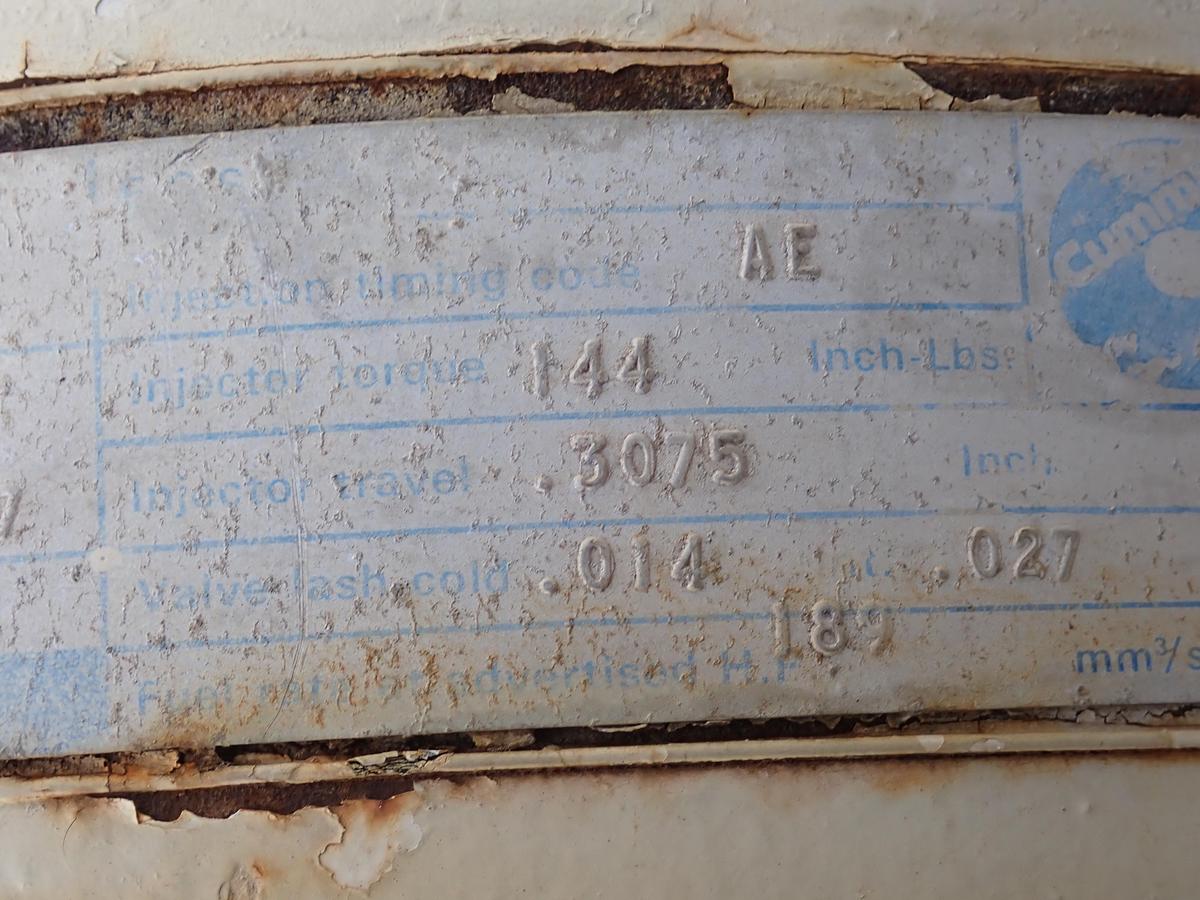 Injection timing code AE
Cumm
Injector torque 144 Inch-Lbs.
Injector travel .3075 Inch
Valve lash cold .014 .027
Fuel rate at advertised H.P. 189 mm³/s